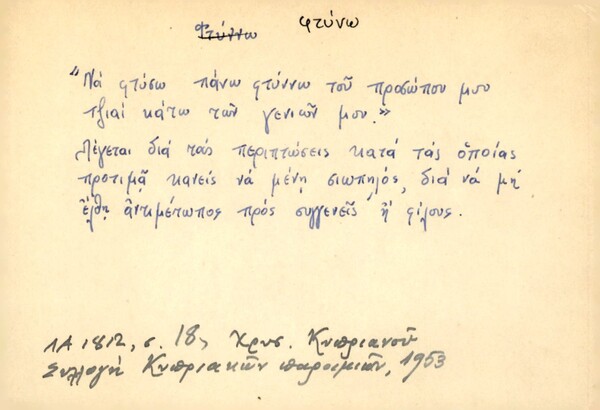 Φτύννω φτύνω
"Νά φτύσω πάνω φτύννω τοῦ προσώπου μου
τζιαί κάτω τῶν γενιῶν μου."
Λέγεται διά τάς περιπτώσεις κατά τάς ὁποίας
προτιμᾷ κανείς νά μένῃ σιωπηλός, διά νά μή
ἔλθῃ ἀντιμέτωπος πρός συγγενεῖς ἤ φίλους.
ΛΑ 1812, σ. 18, Χρυσ. Κυπριανοῦ
Συλλογή Κυπριακῶν παροιμιῶν, 1953